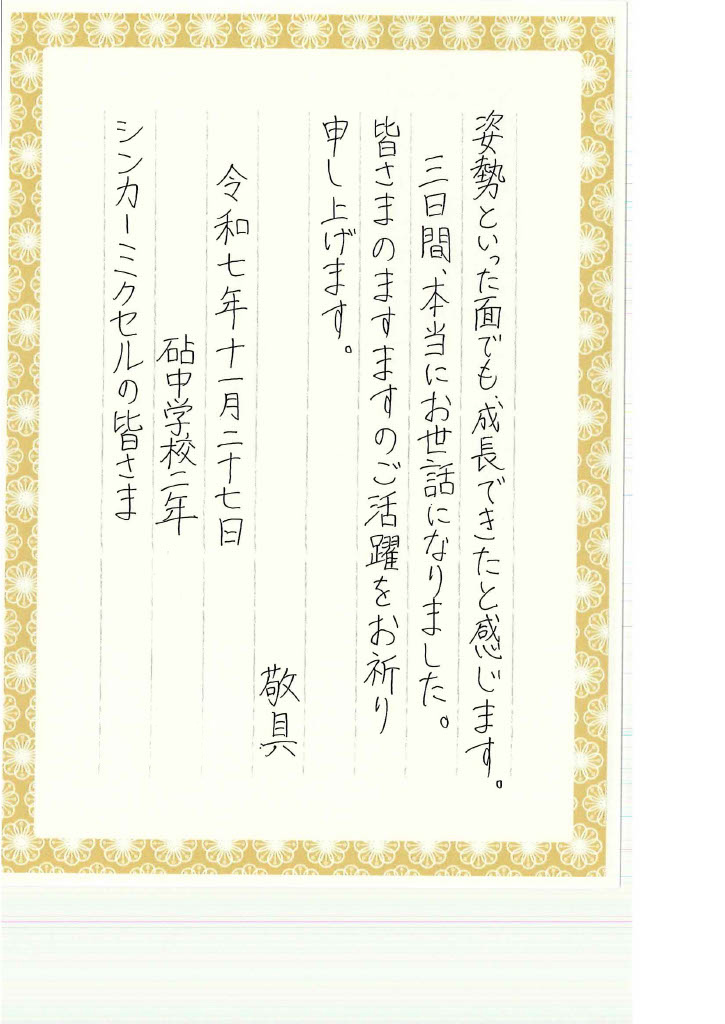 姿勢といった面でも、成長できたと感じます。
三日間、本当にお世話になりました。
皆さまのますますのご活躍をお祈り
申し上げます。
敬具
令和七年十一月二十七日
砧中学校二年
シンカーミクセルの皆さま